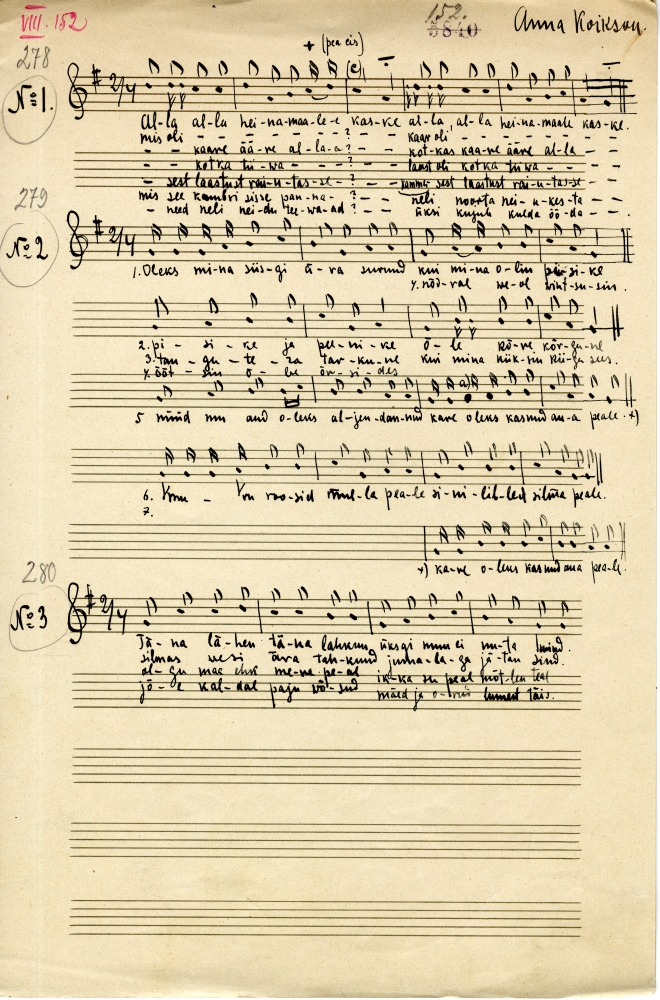 VIII. 152
152.
5840
Anna Koikson.
278
+ (pea cis)
№ 1.
2/4
(c)
Al-la al-la hei-na-maa-le-e kas-ke al-la, al-la hei-na-maale kas-ke.
mis oli - - - - - ? - - kaar oli - - - - - - - -
- - kaare ää-re al-la-a? - - kot-kas kaa-re ääre al-la - -
- - kotka tii-wa - - - ? - - laast oli kotka tiiwa - - - -
- sest laastust rai-u-tas-se-? - - sest laastust rai-u-tas-se-
mis see kambri sisse pan-na-? - - neli noorta nei-u-kes-ta - -
- need neli nei-du tee-wa-ad? - - üksi kujub kulda öö-da - - .
279
№ 2
2/4
1. Oleks mi-na siis-gi ä-ra surnud kui mi-na o-lin pii-si-ke
2. pi - si - ke ja pee-ni-ke ö - le kõr-ge-ne
3. tan-gu-te-ra tar-ku-ne kui mina kiik-sin kii-ge sees.
4. ööt - sin ö - le
5 nüüd mu aud o-leks al-jen-dan-nud kare oleks kasnud au-a peale. x)
6. Kuu - Kuu roo-sid mul-la pea-le si-ni-lil-led silma peale.
7.
x) ka-re o-leks kasnud aua pea-le.
280
№ 3
2/4
Jä-na lä-hen tä-na lahkun üksgi mu ei nu-ta mind.
silmas wesi ära tah-kund juma-la-ga jä-tan sind.
ol-gu maa ehk me-re pe-al ik-ka su peal mõt-len teal
jõ-e kal-dal paju võ-sud mäed ja o-rud lumest täis.